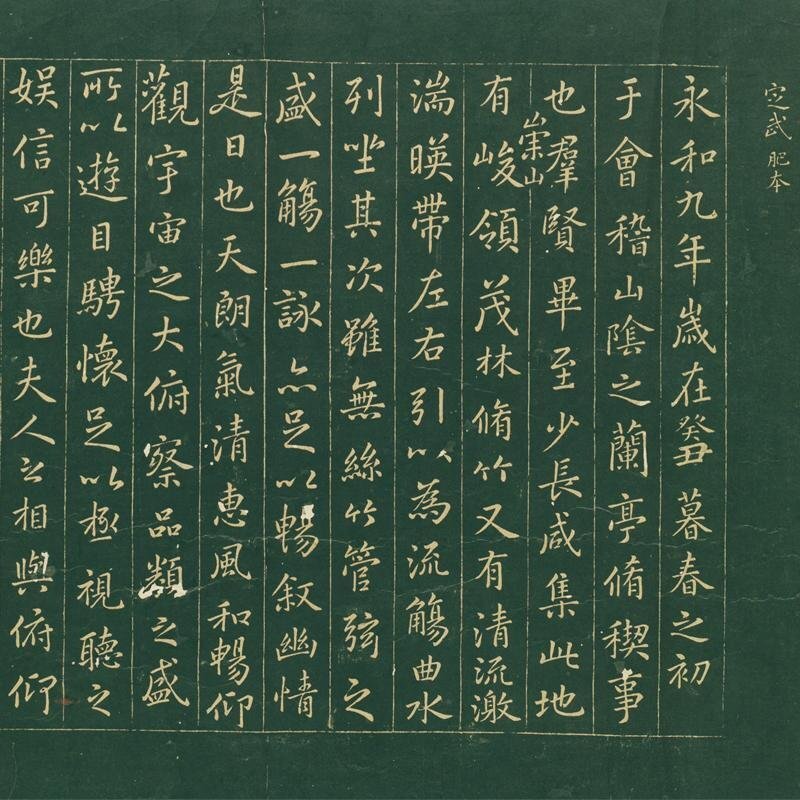 定武肥本
永和九年歲在癸丑暮春之初
于會稽山陰之蘭亭脩稧事
也羣賢畢至少長咸集此地
有崇山峻領茂林脩竹又有清流激
湍暎帶左右引以為流觴曲水
列坐其次雖無絲竹管弦之
盛一觴一詠亦足以暢叙幽情
是日也天朗氣清惠風和暢仰
觀宇宙之大俯察品類之盛
所以遊目騁懷足以極視聽之
娛信可樂也夫人之相與俯仰